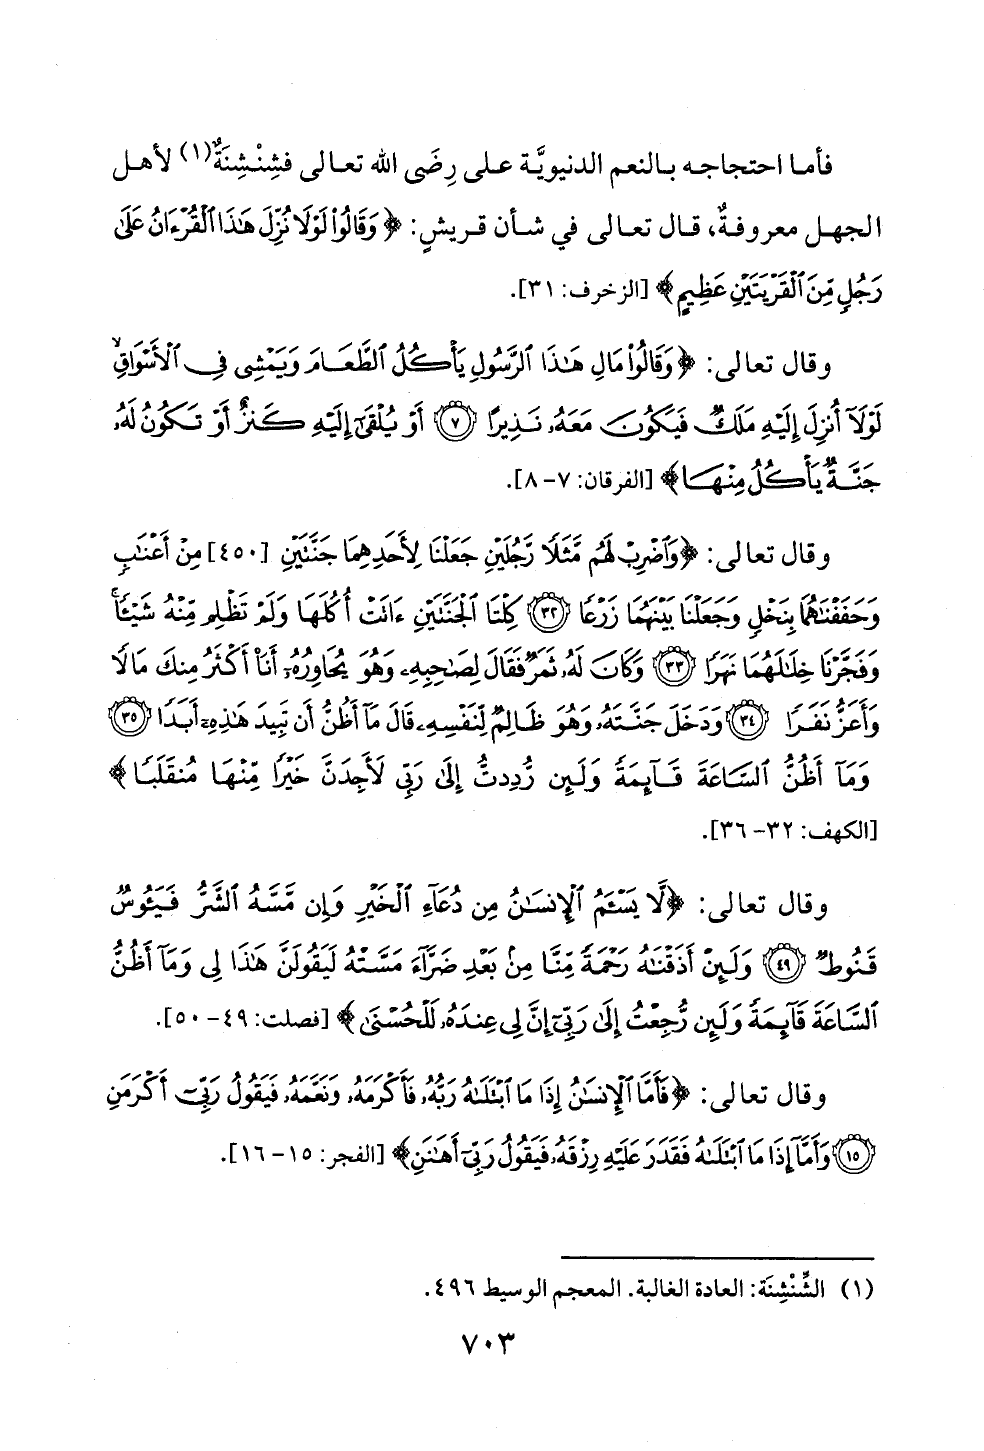 فأما احتجاجه بالنعم الدنيويَّة على رِضَى الله تعالى فشِنْشِنَةٌ(١) لأهل
الجهل معروفةٌ، قال تعالى في شأن قريشٍ: ﴿وَقَالُوا۟ لَوْلَا نُزِّلَ هَٰذَا ٱلْقُرْءَانُ عَلَىٰ
رَجُلٍ مِّنَ ٱلْقَرْيَتَيْنِ عَظِيمٍ﴾ [الزخرف: ٣١].
وقال تعالى: ﴿وَقَالُوا۟ مَالِ هَٰذَا ٱلرَّسُولِ يَأْكُلُ ٱلطَّعَامَ وَيَمْشِى فِى ٱلْأَسْوَاقِ ۙ
لَوْلَآ أُنزِلَ إِلَيْهِ مَلَكٌ فَيَكُونَ مَعَهُۥ نَذِيرًا ٧ أَوْ يُلْقَىٰٓ إِلَيْهِ كَنزٌ أَوْ تَكُونُ لَهُۥ
جَنَّةٌ يَأْكُلُ مِنْهَا﴾ [الفرقان: ٧-٨].
وقال تعالى: ﴿وَٱضْرِبْ لَهُم مَّثَلًا رَّجُلَيْنِ جَعَلْنَا لِأَحَدِهِمَا جَنَّتَيْنِ [٤٥٠] مِنْ أَعْنَٰبٍ
وَحَفَفْنَٰهُمَا بِنَخْلٍ وَجَعَلْنَا بَيْنَهُمَا زَرْعًا ٣٢ كِلْتَا ٱلْجَنَّتَيْنِ ءَاتَتْ أُكُلَهَا وَلَمْ تَظْلِم مِّنْهُ شَيْـًٔا ۚ
وَفَجَّرْنَا خِلَٰلَهُمَا نَهَرًا ٣٣ وَكَانَ لَهُۥ ثَمَرٌ فَقَالَ لِصَٰحِبِهِۦ وَهُوَ يُحَاوِرُهُۥٓ أَنَا۠ أَكْثَرُ مِنكَ مَالًا
وَأَعَزُّ نَفَرًا ٣٤ وَدَخَلَ جَنَّتَهُۥ وَهُوَ ظَالِمٌ لِّنَفْسِهِۦ قَالَ مَآ أَظُنُّ أَن تَبِيدَ هَٰذِهِۦٓ أَبَدًا ٣٥
وَمَآ أَظُنُّ ٱلسَّاعَةَ قَآئِمَةً وَلَئِن رُّدِدتُّ إِلَىٰ رَبِّى لَأَجِدَنَّ خَيْرًا مِّنْهَا مُنقَلَبًا﴾
[الكهف: ٣٢-٣٦].
وقال تعالى: ﴿لَّا يَسْـَٔمُ ٱلْإِنسَٰنُ مِن دُعَآءِ ٱلْخَيْرِ وَإِن مَّسَّهُ ٱلشَّرُّ فَيَـُٔوسٌ
قَنُوطٌ ٤٩ وَلَئِنْ أَذَقْنَٰهُ رَحْمَةً مِّنَّا مِنۢ بَعْدِ ضَرَّآءَ مَسَّتْهُ لَيَقُولَنَّ هَٰذَا لِى وَمَآ أَظُنُّ
ٱلسَّاعَةَ قَآئِمَةً وَلَئِن رُّجِعْتُ إِلَىٰ رَبِّىٓ إِنَّ لِى عِندَهُۥ لَلْحُسْنَىٰ﴾ [فصلت: ٤٩-٥٠].
وقال تعالى: ﴿فَأَمَّا ٱلْإِنسَٰنُ إِذَا مَا ٱبْتَلَىٰهُ رَبُّهُۥ فَأَكْرَمَهُۥ وَنَعَّمَهُۥ فَيَقُولُ رَبِّىٓ أَكْرَمَنِ
١٥ وَأَمَّآ إِذَا مَا ٱبْتَلَىٰهُ فَقَدَرَ عَلَيْهِ رِزْقَهُۥ فَيَقُولُ رَبِّىٓ أَهَٰنَنِ﴾ [الفجر: ١٥-١٦].
(١) الشِّنْشِنَة: العادة الغالبة. المعجم الوسيط ٤٩٦.
٧٠٣